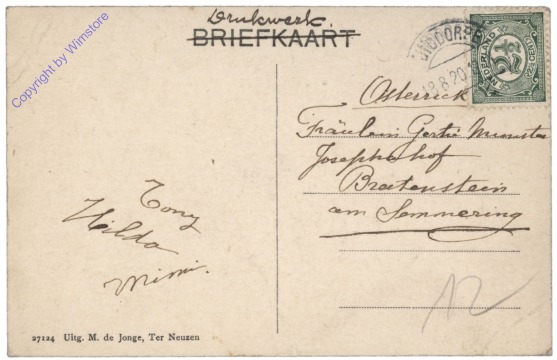 Drukwerk.
BRIEFKAART
NEDERLAND
2½
CENT
18.8.20
Osterreich
Fräulein Gertie
Josephshof
Breitenstein
am Semmering
Tony
Hilda
Mimi.
12
27124 Uitg. M. de Jonge, Ter Neuzen
Copyright by Wimstore